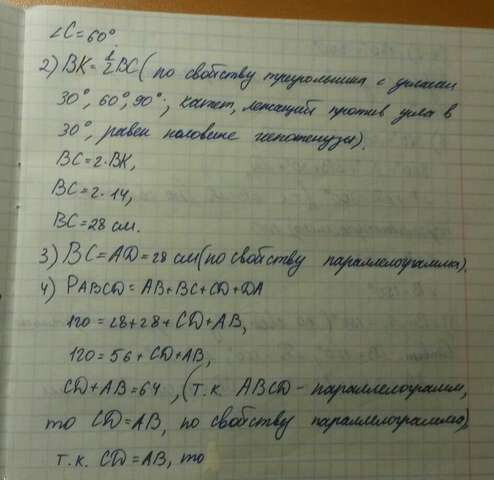 ∠C=60°.
2) BK=1/2BC (по свойству треугольника с углами
30°, 60°, 90°; катет, лежащий против угла в
30°, равен половине гипотенузы).
BC=2·BK,
BC=2·14,
BC=28 см.
3) BC=AD=28 см(по свойству параллелограмма).
4) PABCD=AB+BC+CD+DA
120=28+28+CD+AB,
120=56+CD+AB,
CD+AB=64, (т.к. ABCD-параллелограмм,
то CD=AB, по свойству параллелограмма)
т.к. CD=AB, то